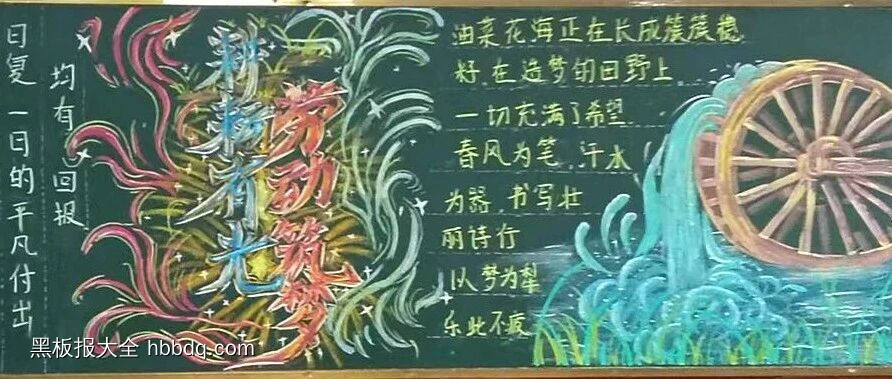 日复一日的平凡付出
均有回报
耕耘有光
劳动筑梦
油菜花海正在长成簇簇穗
好在造梦的田野上
一切充满了希望
春风为笔,汗水
为器,书写壮
丽诗行
以梦为犁
乐此不疲
黑板报大全 hbbdq.com